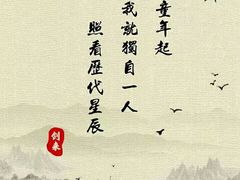 童年起
我就獨自一人
照看歷代星辰
剑来